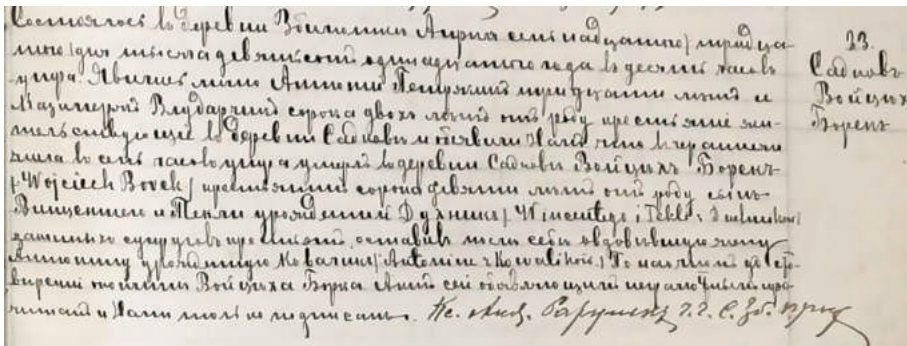 Состоялось въ деревни Збилютки Апрѣля семнадцатаго / тридца-
таго / дня тысяча девятьсотъ одинадцатаго года въ десять часовъ
утра. Явились лично Антоній тридцати лѣтъ и
Казимержъ Влударчикъ сорока двохъ лѣтъ отъ роду крестьяне жи-
тельствующіе въ деревни Садковъ и объявили Намъ что вчерашняго
числа въ семь часовъ утра умеръ въ деревни Садковъ Войцѣхъ Борекъ
/ Wojciech Borek / крестьянинъ сорока девяти лѣтъ отъ роду сынъ
Винцентего и Текли урожденной Духникъ / Wincentego i Tekli z
супруговъ крестьянъ, оставивъ послѣ себя овдовѣвшую жену
Антонину урожденную Коваликъ / Antoninę z Kowalików. / По настоящемъ удосто-
вѣреніи кончины Войцѣха Борка Актъ сей объявляющимъ неграмотнымъ про-
читанъ и Нами только подписанъ. Кс. Анд.
23.
Садковъ
Войцѣхъ
Борекъ